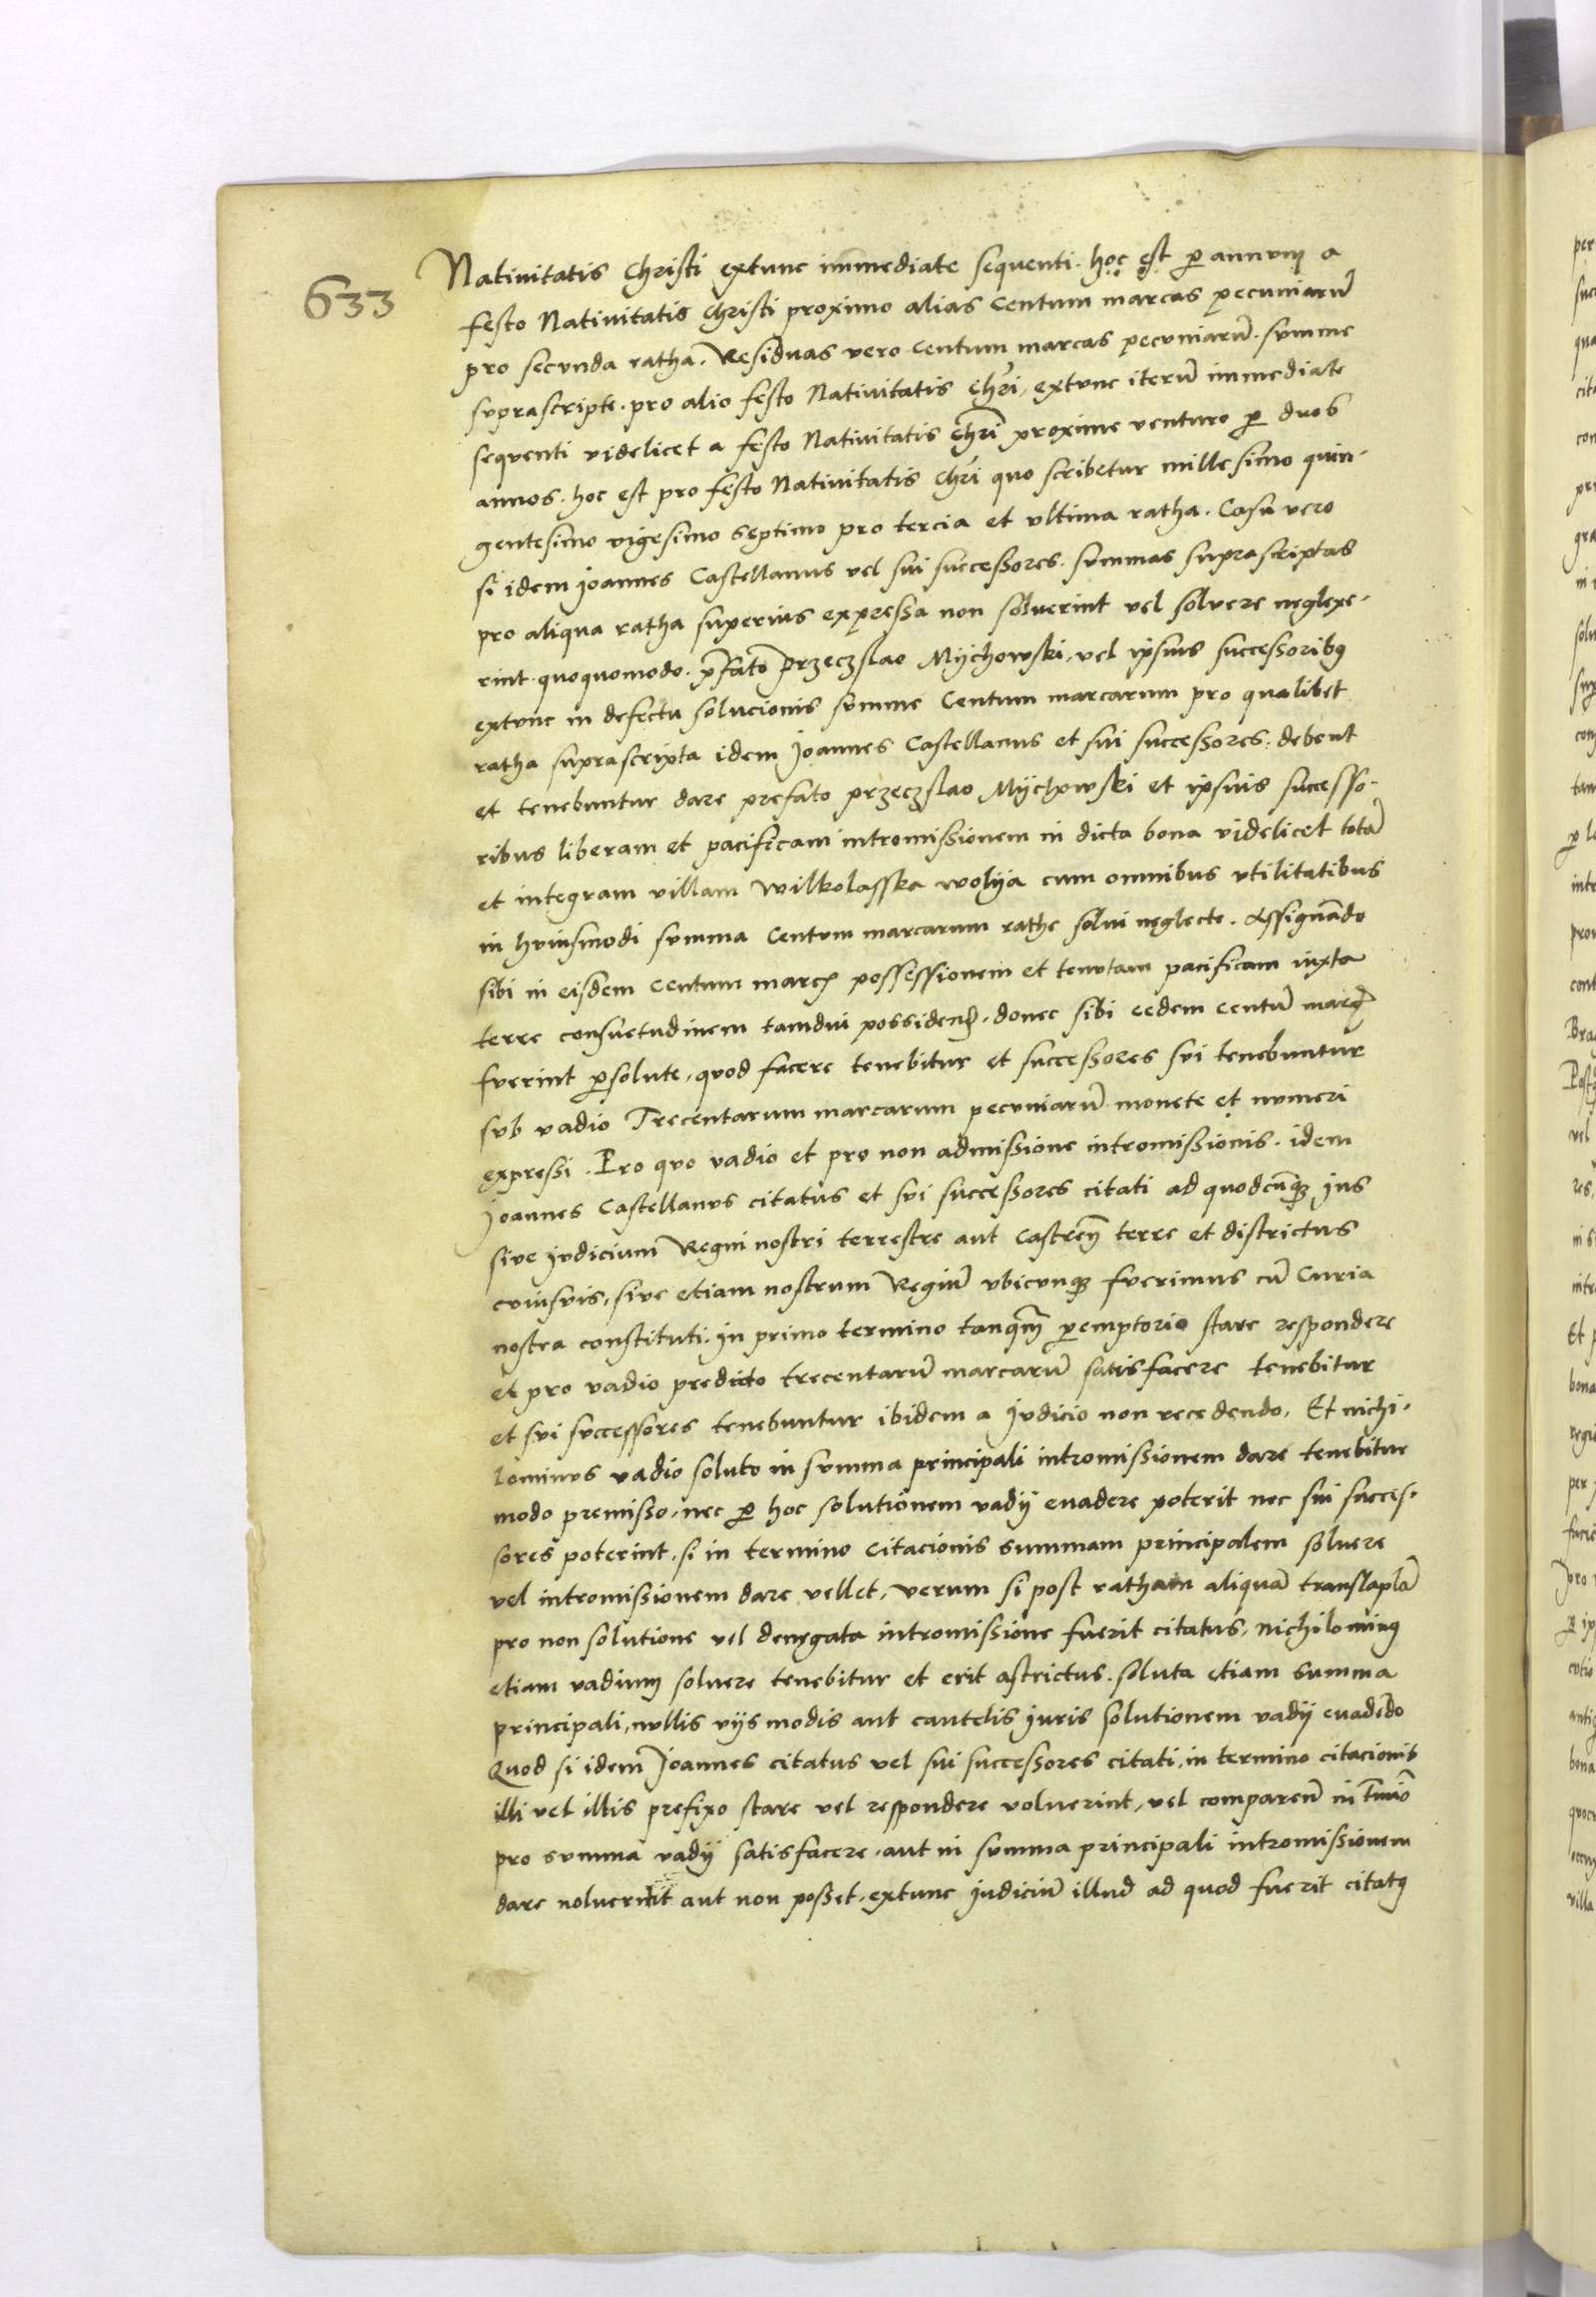 633
Nativitatis Christi extunc immediate sequenti. hoc est ꝑ annum a
festo Nativitatis Christi proximo alias Centum marcas pecuniarũ
pro secunda ratha. Residuas vero Centum marcas pecuniarũ. summe
suprascripte. pro alio festo Nativitatis Chr̃i, extunc iterũ immediate
sequenti videlicet a festo Nativitatis Chr̃i proxime venturo ꝑ duos
annos. hoc est pro festo Nativitatis Chr̃i quo scribetur millesimo quin-
gentesimo vigesimo septimo pro tercia et ultima ratha. Casu vero
si idem Joannes Castellanus vel sui successores. summas suprascriptas
pro aliqua ratha superius expressa non solverint vel solvere neglexe-
rint quoquomodo. p̃fato Przeczslao Mÿchowski, vel ipsius successoribꝰ
extunc in defectu solucionis summe Centum marcarum pro qualibet
ratha suprascripta idem Joannes Castellanus et sui successores. debent
et tenebuntur dare prefato Przeczslao Mÿchowski et ipsius successo-
ribus liberam et pacificam intromissionem in dicta bona videlicet totã
et integram villam Wilkolasska wolÿa cum omnibus utilitatibus
in huiusmodi summa Centum marcarum rathe solui neglecte. Assignãdo
sibi in eisdem Centum marcꝭ possessionem et tenutam pacificam iuxta
terre consuetudinem tamdiu possidendꝭ. donec sibi eedem centũ marcꝭ
fuerint ꝑsolute, quod facere tenebitur et successores sui tenebuntur
sub vadio Trecentarum marcarum pecuniarũ monete et numeri
expressi. Pro quo vadio et pro non admissione intromissionis. idem
Joannes Castellanus citatus et sui successores citati ad quodcũqꝫ Jus
sive Judicium Regni nostri terrestre aut Castreñ terre et districtus
cuiusvis, sive etiam nostrum Regiũ ubicunqꝫ fuerimus cũ Curia
nostra constituti. in primo termino tanq̃m ꝑemptorio stare respondere
et pro vadio predicto trecentarũ marcarũ satisfacere tenebitur
et sui successores tenebuntur ibidem a Judicio non recedendo. Et nichi-
lominus vadio soluto in summa principali intromissionem dare tenebitur
modo premisso, nec ꝑ hoc solutionem vadÿ evadere poterit nec sui succes-
sores poterint, si in termino Citacionis summam principalem solvere
vel intromissionem dare vellet, verum si post ratham aliquã translaptã
pro non solutione vel denegata intromissione fuerit citatus, nichilominꝰ
etiam vadium solvere tenebitur et erit astrictus. soluta etiam summa
principali, nullis vÿs modis aut cautelis juris solutionem vadÿ evadẽdo
Quod si idem Joannes citatus vel sui successores citati, in termino citacionis
illi vel illis prefixo stare vel respondere noluerint, vel comparenꝭ in t̃mio
pro summa vadÿ satisfacere. aut in summa principali intromissionem
dare noluerint aut non posset, extunc judiciũ illud ad quod fuerit citatꝰ